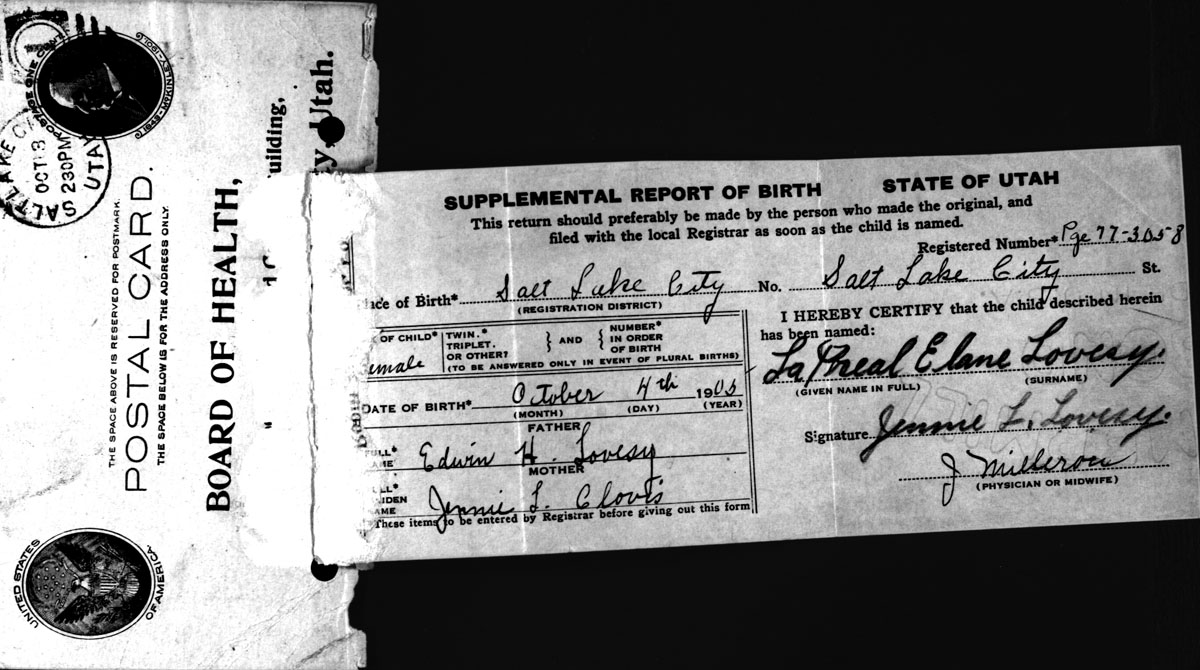 POSTAGE ONE CENT
1843-McKINLEY-1901
SALT LAKE C
OCT 13
230 PM
UTAH
THE SPACE ABOVE IS RESERVED FOR POSTMARK.
POSTAL CARD.
THE SPACE BELOW IS FOR THE ADDRESS ONLY.
UNITED STATES
OF AMERICA
BOARD OF HEALTH,
uilding,
ty, Utah.
SUPPLEMENTAL REPORT OF BIRTH STATE OF UTAH
This return should preferably be made by the person who made the original, and
filed with the local Registrar as soon as the child is named.
Registered Number* Pge 77-3058
ace of Birth* Salt Lake City No. Salt Lake City St.
(REGISTRATION DISTRICT)
OF CHILD* emale
TWIN.* TRIPLET. OR OTHER? } AND { NUMBER* IN ORDER OF BIRTH
(TO BE ANSWERED ONLY IN EVENT OF PLURAL BIRTHS)
DATE OF BIRTH* October 4th 1905
(MONTH) (DAY) (YEAR)
FATHER
FULL* AME Edwin H. Lovesy
MOTHER
LL* IDEN AME Jennie L. Clovis
*These items to be entered by Registrar before giving out this form
I HEREBY CERTIFY that the child described herein
has been named:
La Elane Lovesy.
(GIVEN NAME IN FULL) (SURNAME)
Signature Jennie L. Lovesy.
J
(PHYSICIAN OR MIDWIFE)